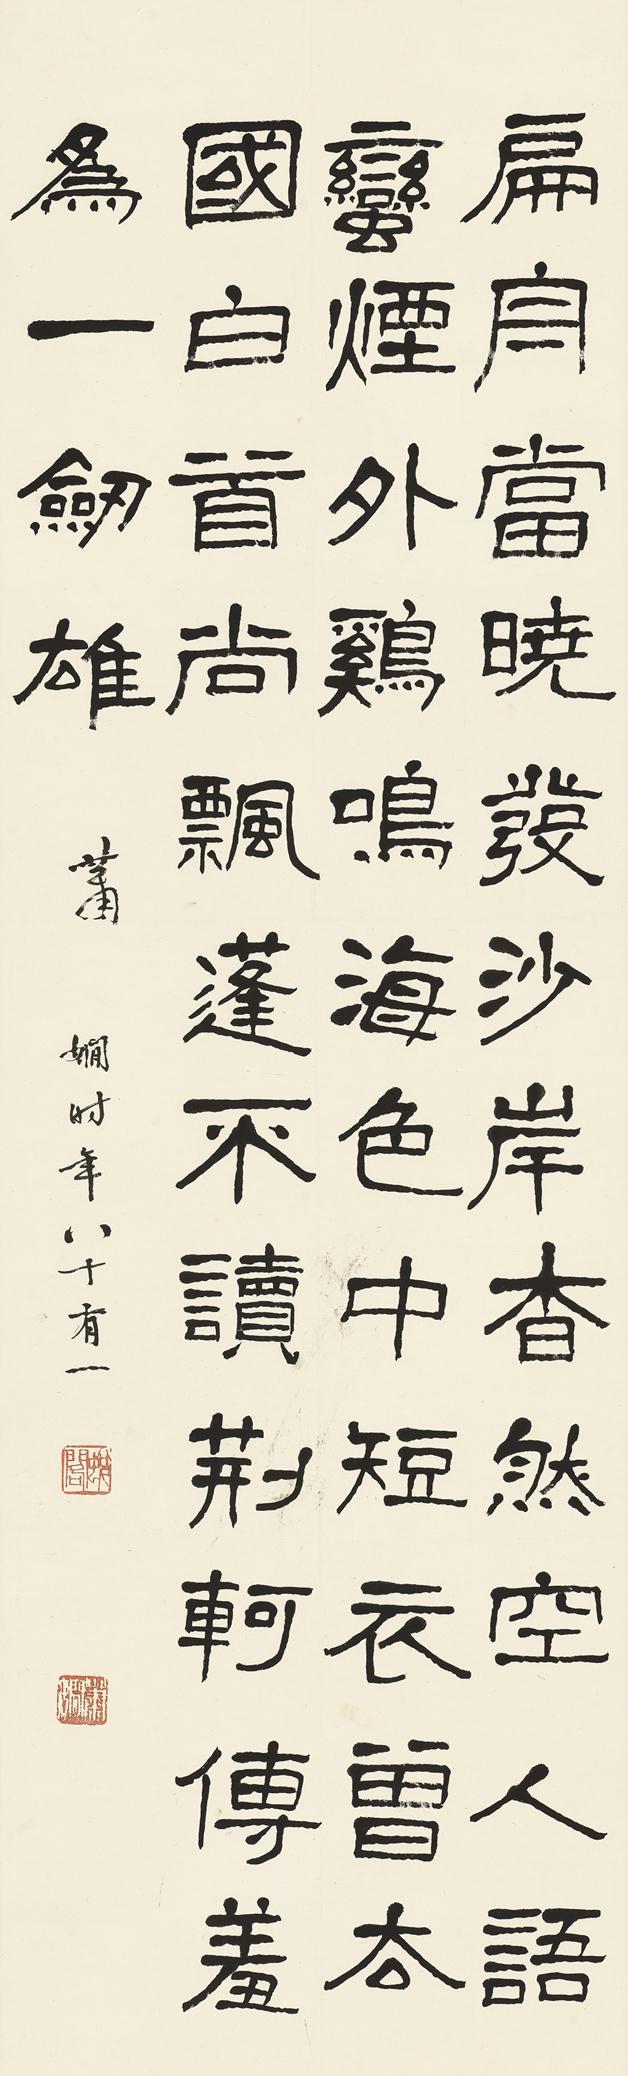 扁舟當曉發沙岸杳然空人語
蠻煙外鷄鳴海色中短衣曾去
國白首尚飄蓬不讀荆軻傳羞
爲一劒雄
蕭嫻时年八十有一
蜕閣
蕭嫻